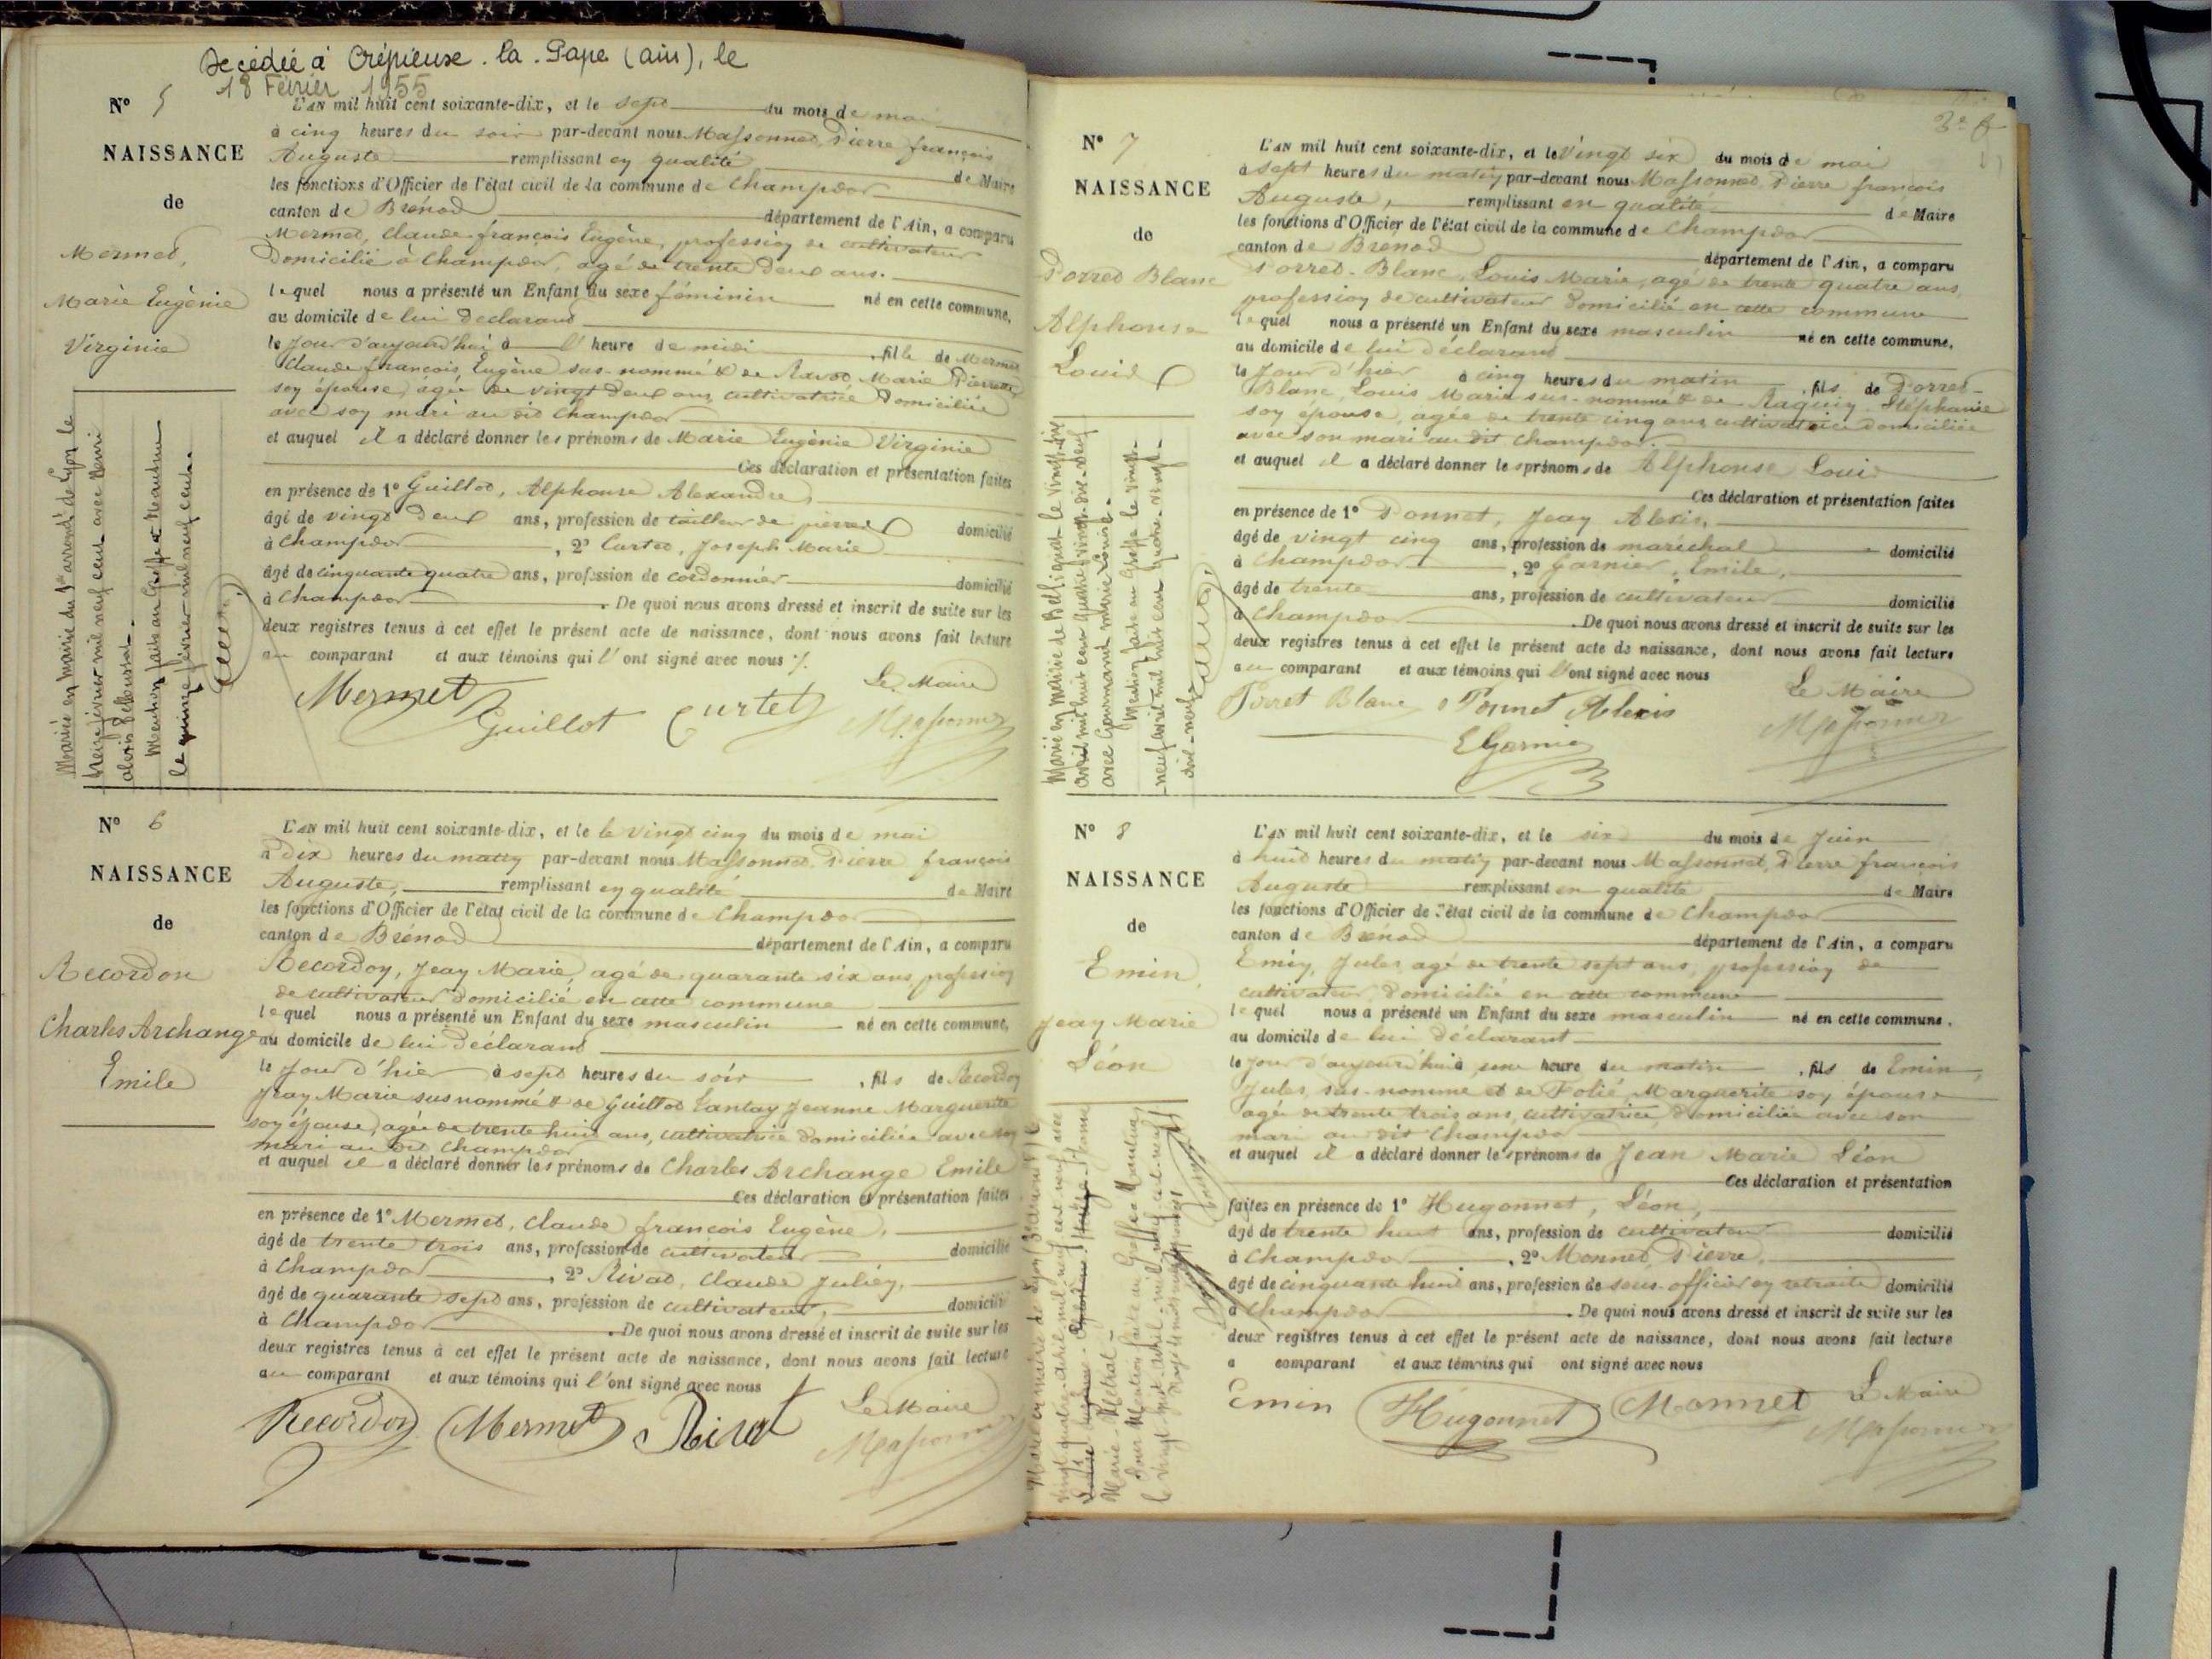 Décédée à Crépieux-la-Pape (ain), le
18 Février 1955
N° 5
NAISSANCE
de
Mermet,
Marie Eugénie
Virginie
L'AN mil huit cent soixante-dix, et le sept du mois de mai
à cinq heures du soir par-devant nous Massonnet, Pierre françois
Auguste remplissant en qualité de Maire
les fonctions d'Officier de l'état civil de la commune de Champdor
canton de Brénod département de l'Ain, a comparu
Mermet, Claude françois Eugène, profession de cultivateur
Domicilié à Champdor, agé de trente deux ans.
lequel nous a présenté un Enfant du sexe féminin né en cette commune,
au domicile de lui déclarant
le Jour d'aujourd'hui à l'heure de midi, fille de Mermet
Claude françois Eugène sus-nommé & de Marie Pierrette
son épouse, agée de vingt deux ans, cultivatrice Domiciliée
avec son mari au dit Champdor
et auquel il a déclaré donner les prénoms de Marie Eugénie Virginie
Ces déclaration et présentation faites
en présence de 1° Guillot, Alphonse Alexandre
âgé de vingt deux ans, profession de tailleur de pierres domicilié
à Champdor, 2° Curtet, Joseph Marie
âgé de cinquante quatre ans, profession de cordonnier domicilié
à Champdor. De quoi nous avons dressé et inscrit de suite sur les
deux registres tenus à cet effet le présent acte de naissance, dont nous avons fait lecture
au comparant et aux témoins qui l'ont signé avec nous
Le Maire
Mermet Guillot Curtet Massonnet
Mariée en mairie du arrond^t de Lyon le
janvier mil neuf cent avec
Mention faite au Greffe
le quinze février mil neuf cent
N° 6
NAISSANCE
de
Recordon
Charles Archange
Emile
L'AN mil huit cent soixante-dix, et le le vingt cinq du mois de mai
à Dix heures du matin par-devant nous Massonnet, Pierre françois
Auguste, remplissant en qualité de Maire
les fonctions d'Officier de l'état civil de la commune de Champdor
canton de Brénod département de l'Ain, a comparu
Recordon, Jean Marie, agé de quarante six ans, profession
de cultivateur domicilié en cette commune
lequel nous a présenté un Enfant du sexe masculin né en cette commune,
au domicile de lui Déclarant
le Jour d'hier à sept heures du soir, fils de Recordon
Jean Marie sus nommé & de Guillot Lantay Jeanne Marguerite
son épouse, agée de trente huit ans, cultivatrice domiciliée avec son
mari au dit Champdor
et auquel il a déclaré donner les prénoms de Charles Archange Emile
Ces déclaration et présentation faites
en présence de 1° Mermet, Claude françois Eugène,
âgé de trente trois ans, profession de cultivateur domicilié
à Champdor, 2° Rivat, Claude Julien,
âgé de quarante sept ans, profession de cultivateur, domicilié
à Champdor. De quoi nous avons dressé et inscrit de suite sur les
deux registres tenus à cet effet le présent acte de naissance, dont nous avons fait lecture
au comparant et aux témoins qui l'ont signé avec nous
Le Maire
Recordon Mermet Rivat Massonnet
N° 7
NAISSANCE
de
Porret Blanc
Alphonse
Louis
L'AN mil huit cent soixante-dix, et le Vingt six du mois de mai
à sept heures du matin par-devant nous Massonnet, Pierre françois
Auguste, remplissant en qualité de Maire
les fonctions d'Officier de l'état civil de la commune de Champdor
canton de Brénod département de l'Ain, a comparu
Porret-Blanc, Louis Marie, agé de trente quatre ans,
profession de cultivateur domicilié en cette commune
lequel nous a présenté un Enfant du sexe masculin né en cette commune,
au domicile de lui déclarant
le Jour d'hier à cinq heures du matin, fils de Porret-
Blanc, Louis Marie sus-nommé & de Stéphanie
son épouse, agée de trente cinq ans cultivatrice domiciliée
avec son mari au dit Champdor.
et auquel il a déclaré donner les prénoms de Alphonse Louis
Ces déclaration et présentation faites
en présence de 1° Ponnet, Jean Alexis,
âgé de vingt cinq ans, profession de maréchal domicilié
à Champdor, 2° Garnier, Emile,
âgé de trente ans, profession de cultivateur domicilié
à Champdor. De quoi nous avons dressé et inscrit de suite sur les
deux registres tenus à cet effet le présent acte de naissance, dont nous avons fait lecture
au comparant et aux témoins qui l'ont signé avec nous
Le Maire
Porret Blanc Ponnet Alexis Massonnet
E Garnier
Marié en mairie de Bellignat le vingt-six
avril mil huit cent quatre vingt-dix-neuf
avec Gourmand Marie Louise.
Mention faite au Greffe le vingt-
-neuf avril mil huit cent quatre-vingt-
dix-neuf
N° 8
NAISSANCE
de
Emin,
Jean Marie
Léon
L'AN mil huit cent soixante-dix, et le six du mois de Juin
à huit heures du matin par-devant nous Massonnet, Pierre françois
Auguste remplissant en qualité de Maire
les fonctions d'Officier de l'état civil de la commune de Champdor
canton de Brénod département de l'Ain, a comparu
Emin, Jules, agé de trente sept ans, profession de
cultivateur, domicilié en cette commune
lequel nous a présenté un Enfant du sexe masculin né en cette commune,
au domicile de lui déclarant
le Jour d'aujourd'hui à une heure du matin, fils de Emin,
Jules, sus-nommé et de Folié Marguerite son épouse
agée de trente trois ans, cultivatrice, domiciliée avec son
mari au dit Champdor
et auquel il a déclaré donner les prénoms de Jean Marie Léon
Ces déclaration et présentation
faites en présence de 1° Hugonnet, Léon,
âgé de trente huit ans, profession de cultivateur domicilié
à Champdor, 2° Monnet, Pierre,
âgé de cinquante huit ans, profession de sous-officier en retraite domicilié
à Champdor. De quoi nous avons dressé et inscrit de suite sur les
deux registres tenus à cet effet le présent acte de naissance, dont nous avons fait lecture
a comparant et aux témoins qui ont signé avec nous
Le Maire
Emin Hugonnet Monnet Massonnet
Marié en mairie de Lyon
vingt quatre avril mil neuf cent neuf avec
Marie